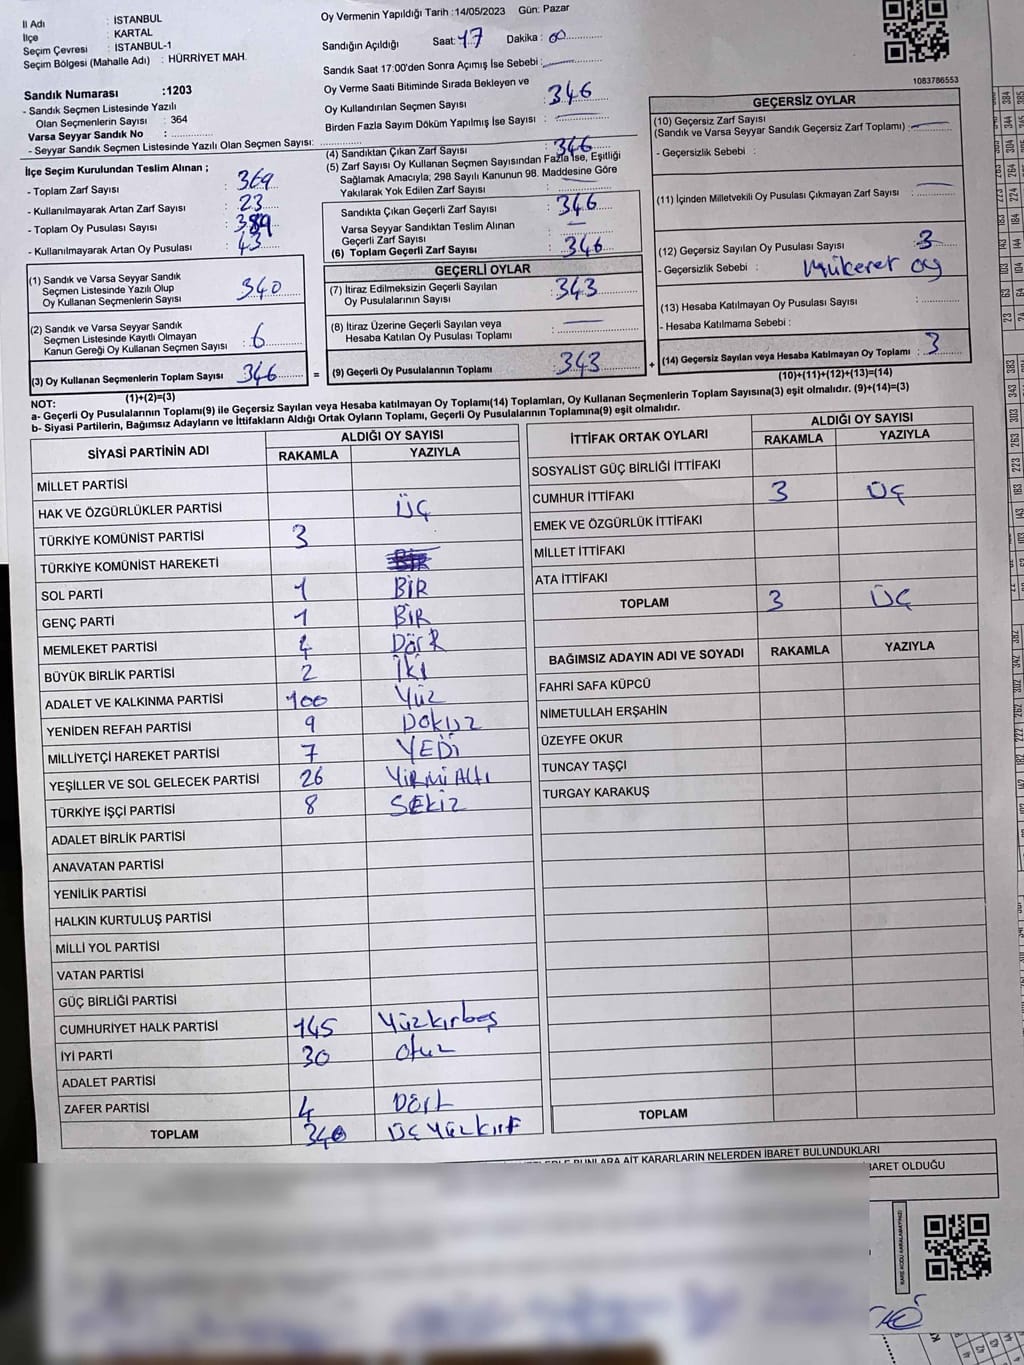 İl Adı : İSTANBUL
İlçe : KARTAL
Seçim Çevresi : İSTANBUL-1
Seçim Bölgesi (Mahalle Adı) : HÜRRİYET MAH.
Sandık Numarası :1203
- Sandık Seçmen Listesinde Yazılı
Olan Seçmenlerin Sayısı : 364
Varsa Seyyar Sandık No :
- Seyyar Sandık Seçmen Listesinde Yazılı Olan Seçmen Sayısı:
Oy Vermenin Yapıldığı Tarih :14/05/2023 Gün: Pazar
Sandığın Açıldığı Saat: 17 Dakika : 00
Sandık Saat 17:00'den Sonra Açımış İse Sebebi:
Oy Verme Saati Bitiminde Sırada Bekleyen ve
Oy Kullandırılan Seçmen Sayısı : 346
Birden Fazla Sayım Döküm Yapılmış İse Sayısı :
1083786553
İlçe Seçim Kurulundan Teslim Alınan ;
- Toplam Zarf Sayısı : 369
- Kullanılmayarak Artan Zarf Sayısı : 23
- Toplam Oy Pusulası Sayısı : 389
- Kullanılmayarak Artan Oy Pusulası : 43
(1) Sandık ve Varsa Seyyar Sandık
Seçmen Listesinde Yazılı Olup
Oy Kullanan Seçmenlerin Sayısı : 340
(2) Sandık ve Varsa Seyyar Sandık
Seçmen Listesinde Kayıtlı Olmayan
Kanun Gereği Oy Kullanan Seçmen Sayısı : 6
(3) Oy Kullanan Seçmenlerin Toplam Sayısı 346
(1)+(2)=(3)
(4) Sandıktan Çıkan Zarf Sayısı : 346
(5) Zarf Sayısı Oy Kullanan Seçmen Sayısından Fazla İse, Eşitliği
Sağlamak Amacıyla; 298 Sayılı Kanunun 98. Maddesine Göre
Yakılarak Yok Edilen Zarf Sayısı :
Sandıkta Çıkan Geçerli Zarf Sayısı : 346
Varsa Seyyar Sandıktan Teslim Alınan
Geçerli Zarf Sayısı :
(6) Toplam Geçerli Zarf Sayısı : 346
GEÇERLİ OYLAR
(7) İtiraz Edilmeksizin Geçerli Sayılan
Oy Pusulalarının Sayısı : 343
(8) İtiraz Üzerine Geçerli Sayılan veya
Hesaba Katılan Oy Pusulası Toplamı :
= (9) Geçerli Oy Pusulalarının Toplamı : 343
GEÇERSİZ OYLAR
(10) Geçersiz Zarf Sayısı
(Sandık ve Varsa Seyyar Sandık Geçersiz Zarf Toplamı) :
- Geçersizlik Sebebi :
(11) İçinden Milletvekili Oy Pusulası Çıkmayan Zarf Sayısı :
(12) Geçersiz Sayılan Oy Pusulası Sayısı : 3
- Geçersizlik Sebebi : Mükerer oy
(13) Hesaba Katılmayan Oy Pusulası Sayısı :
- Hesaba Katılmama Sebebi :
+ (14) Geçersiz Sayılan veya Hesaba Katılmayan Oy Toplamı : 3
(10)+(11)+(12)+(13)=(14)
NOT:
a- Geçerli Oy Pusulalarının Toplamı(9) ile Geçersiz Sayılan veya Hesaba katılmayan Oy Toplamı(14) Toplamları, Oy Kullanan Seçmenlerin Toplam Sayısına(3) eşit olmalıdır. (9)+(14)=(3)
b- Siyasi Partilerin, Bağımsız Adayların ve İttifakların Aldığı Ortak Oyların Toplamı, Geçerli Oy Pusulalarının Toplamına(9) eşit olmalıdır.
SİYASİ PARTİNİN ADI ALDIĞI OY SAYISI
RAKAMLA YAZIYLA
MİLLET PARTİSİ
HAK VE ÖZGÜRLÜKLER PARTİSİ ÜÇ
TÜRKİYE KOMÜNİST PARTİSİ 3
TÜRKİYE KOMÜNİST HAREKETİ
SOL PARTİ 1 BİR
GENÇ PARTİ 1 BİR
MEMLEKET PARTİSİ 4 Dört
BÜYÜK BİRLİK PARTİSİ 2 İki
ADALET VE KALKINMA PARTİSİ 100 Yüz
YENİDEN REFAH PARTİSİ 9 Dokuz
MİLLİYETÇİ HAREKET PARTİSİ 7 YEDİ
YEŞİLLER VE SOL GELECEK PARTİSİ 26 YİRMİ ALTI
TÜRKİYE İŞÇİ PARTİSİ 8 SEKİZ
ADALET BİRLİK PARTİSİ
ANAVATAN PARTİSİ
YENİLİK PARTİSİ
HALKIN KURTULUŞ PARTİSİ
MİLLİ YOL PARTİSİ
VATAN PARTİSİ
GÜÇ BİRLİĞİ PARTİSİ
CUMHURİYET HALK PARTİSİ 145 Yüzkırbeş
İYİ PARTİ 30 Otuz
ADALET PARTİSİ
ZAFER PARTİSİ 4 Dört
TOPLAM 340 Üç Yüz kırk
İTTİFAK ORTAK OYLARI ALDIĞI OY SAYISI
RAKAMLA YAZIYLA
SOSYALİST GÜÇ BİRLİĞİ İTTİFAKI
CUMHUR İTTİFAKI 3 ÜÇ
EMEK VE ÖZGÜRLÜK İTTİFAKI
MİLLET İTTİFAKI
ATA İTTİFAKI
TOPLAM 3 ÜÇ
BAĞIMSIZ ADAYIN ADI VE SOYADI RAKAMLA YAZIYLA
FAHRİ SAFA KÜPCÜ
NİMETULLAH ERŞAHİN
ÜZEYFE OKUR
TUNCAY TAŞÇI
TURGAY KARAKUŞ
TOPLAM
BUNLARA AİT KARARLARIN NELERDEN İBARET BULUNDUKLARI
İBARET OLDUĞU